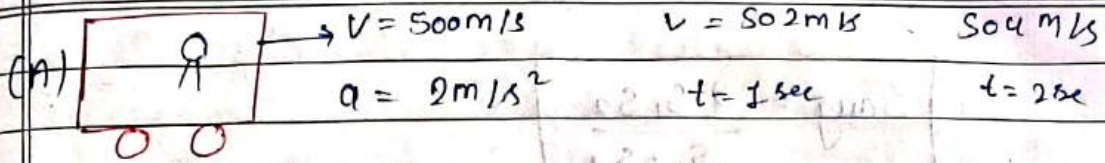 (A) V = 500 m/s v = 502 m/s 504 m/s
a = 2 m/s² t = 1 sec t = 2 se